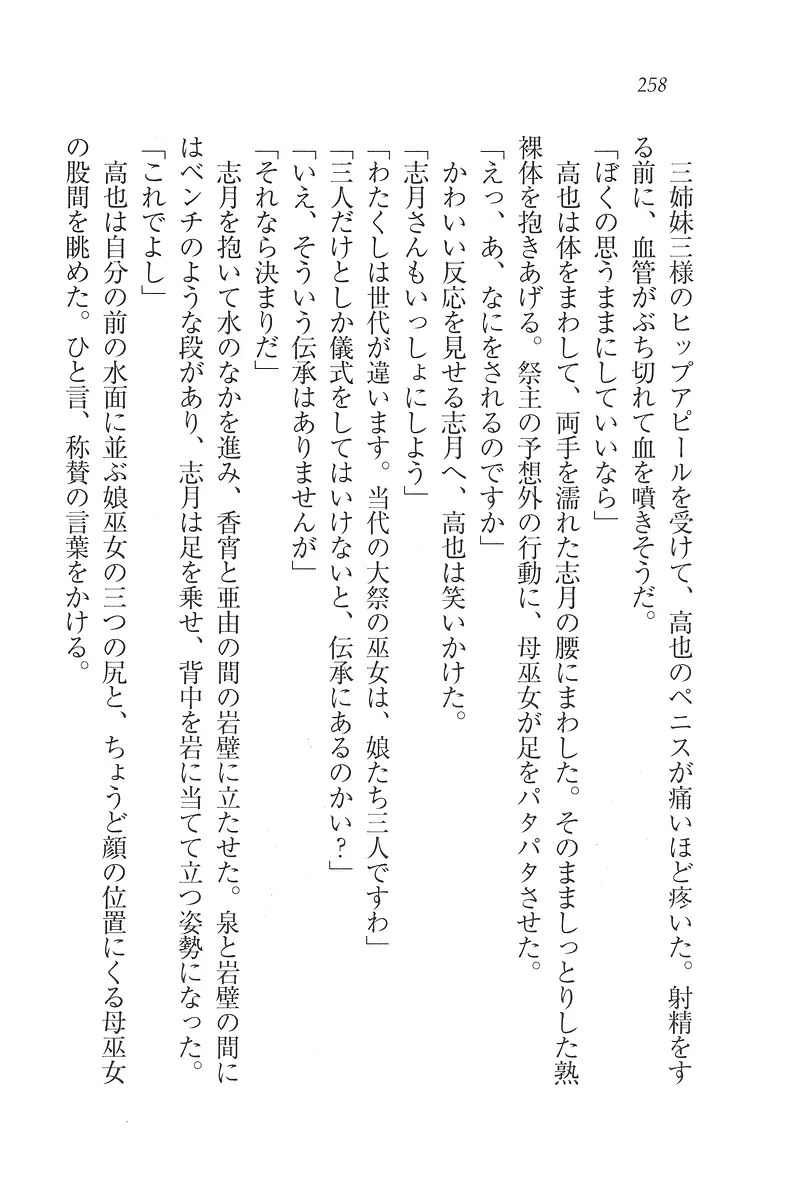 258
三姉妹三様のヒップアピールを受けて、高也のペニスが痛いほど疼いた。射精をす
る前に、血管がぶち切れて血を噴きそうだ。
「ぼくの思うままにしていいなら」
高也は体をまわして、両手を濡れた志月の腰にまわした。そのまましっとりした熟
裸体を抱きあげる。祭主の予想外の行動に、母巫女が足をパタパタさせた。
「えっ、あ、なにをされるのですか」
かわいい反応を見せる志月へ、高也は笑いかけた。
「志月さんもいっしょにしよう」
「わたくしは世代が違います。当代の大祭の巫女は、娘たち三人ですわ」
「三人だけとしか儀式をしてはいけないと、伝承にあるのかい？」
「いえ、そういう伝承はありませんが」
「それなら決まりだ」
志月を抱いて水のなかを進み、香宵と亜由の間の岩壁に立たせた。泉と岩壁の間に
はベンチのような段があり、志月は足を乗せ、背中を岩に当てて立つ姿勢になった。
「これでよし」
高也は自分の前の水面に並ぶ娘巫女の三つの尻と、ちょうど顔の位置にくる母巫女
の股間を眺めた。ひと言、称賛の言葉をかける。